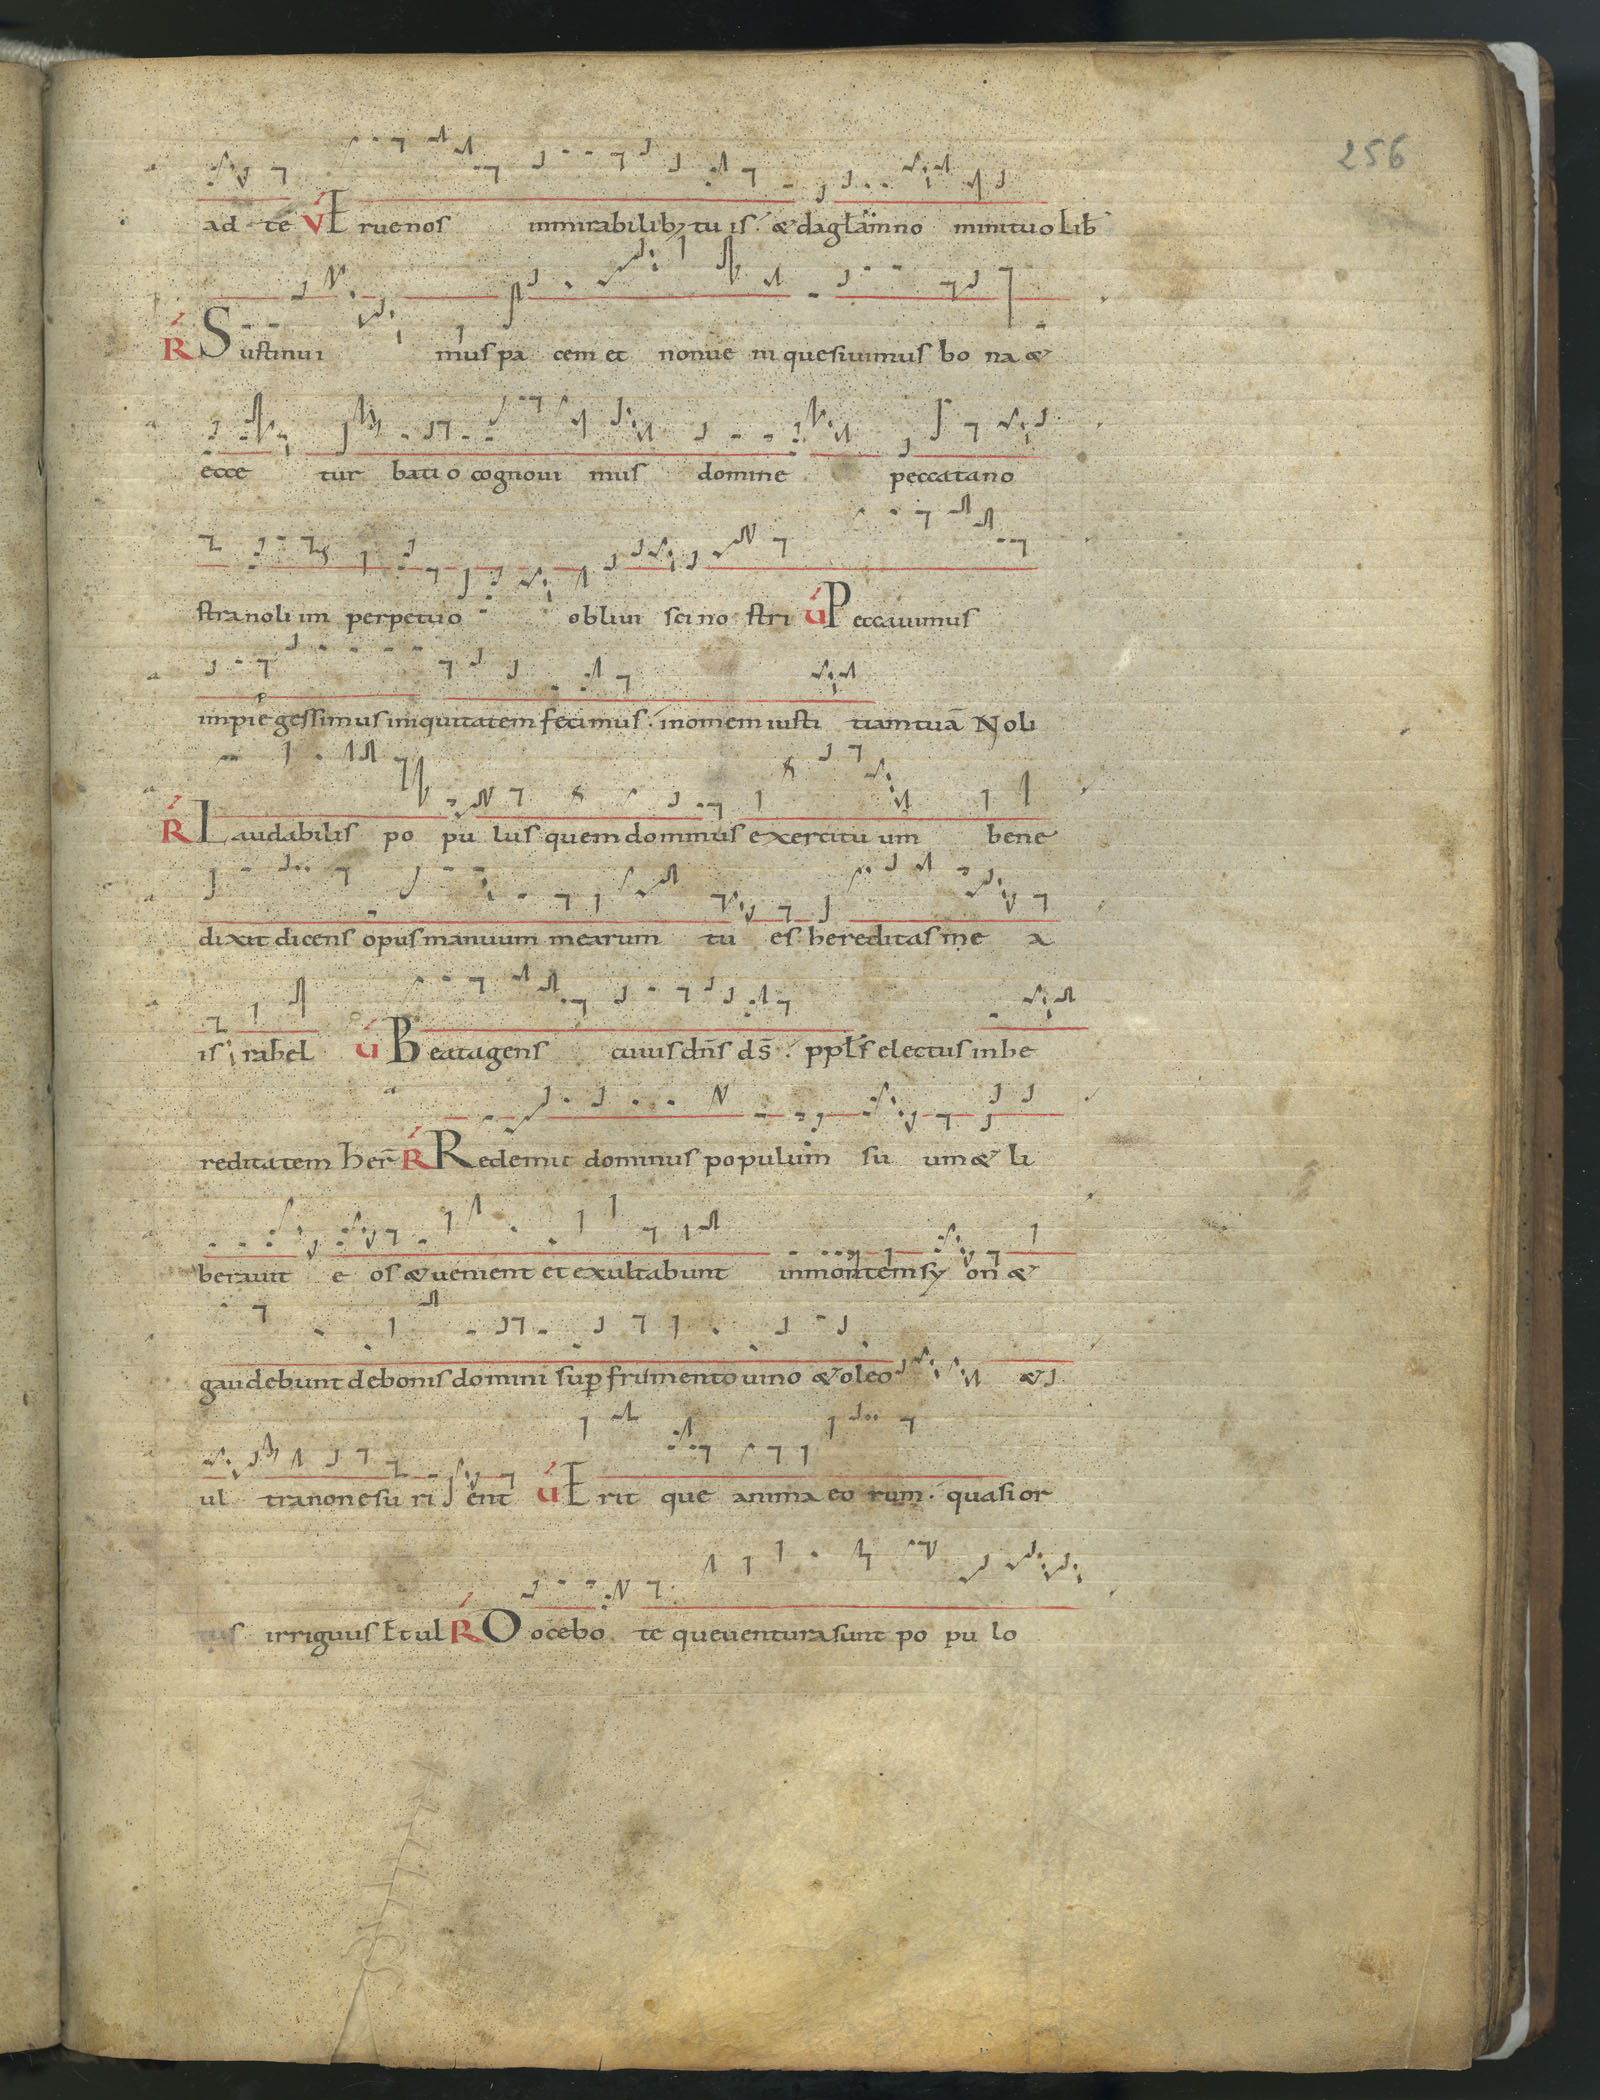 256
ad te V Eruenos inmirabilib; tu is. & da gl̄am no mini tuo lib̄
R Sustinui mus pa cem et non ue ni quesiuimus bo na &
ecce tur batio cognoui mus domine peccata no
stra noli in perpetuo obliui sci no stri V Peccauimus
impie gessimus iniquitatem fecimus. in omem iusti tiam tuā Noli
R Laudabilis po pu lus quem dominus exercitu um bene
dixit dicens opus manuum mearum tu es hereditas me a
is rahel V Beata gens cuius dn̄s ds̄. ppl̄s electus in he
reditatem her̄ R Redemit dominus populum su um & li
berauit e os & uenient et exultabunt in montem sy on &
gaudebunt de bonis domini sup frumento uino & oleo &
ul tra non esu ri ent V Erit que anima eo rum. quasi or
tus irriguus Et ul R Docebo te que uentura sunt po pu lo